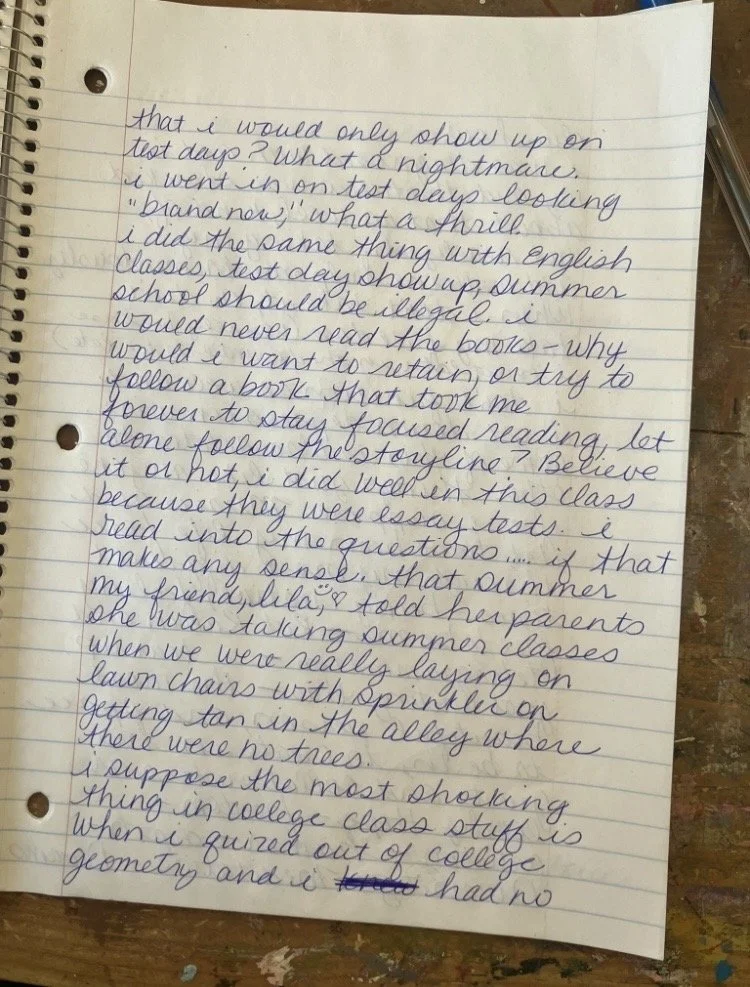 that i would only show up on
test days? What a nightmare.
i went in on test days looking
"brand new," what a thrill.
i did the same thing with English
classes, test day show up, summer
school should be illegal. i
would never read the books - why
would i want to retain, or try to
follow a book that took me
forever to stay focused reading, let
alone follow the storyline? Believe
it or not, i did well in this class
because they were essay tests. i
read into the questions.... if that
makes any sense. that summer
my friend, lila, told her parents
she was taking summer classes
when we were really laying on
lawn chairs with sprinkler on
getting tan in the alley where
there were no trees.
i suppose the most shocking
thing in college class stuff is
when i quized out of college
geometry and i knew had no